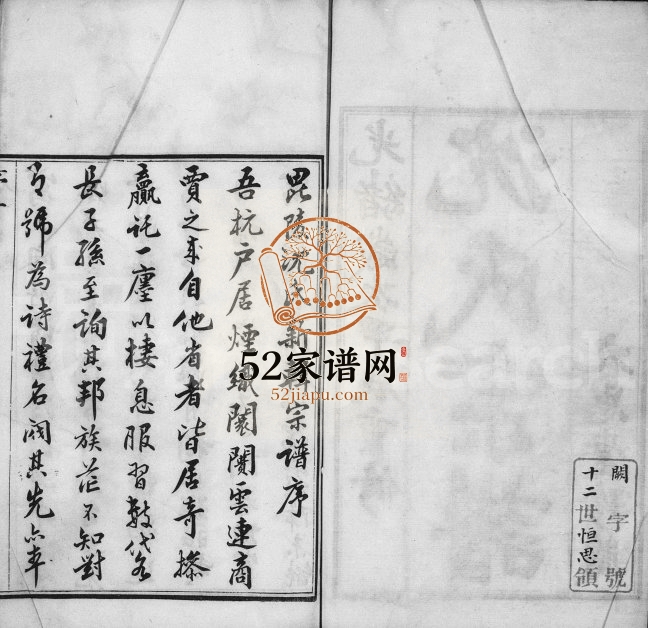 闕字號
十二世恒思領
毘陵沈氏新宗譜序
吾杭戶居煙織闤闠雲連商
賈之來自他省者皆居奇操
贏託一廛以棲息服習數代各
長子孫至詢其邦族茫不知對
號為詩禮名閥其先亦率
52家谱网
52jiapu.com